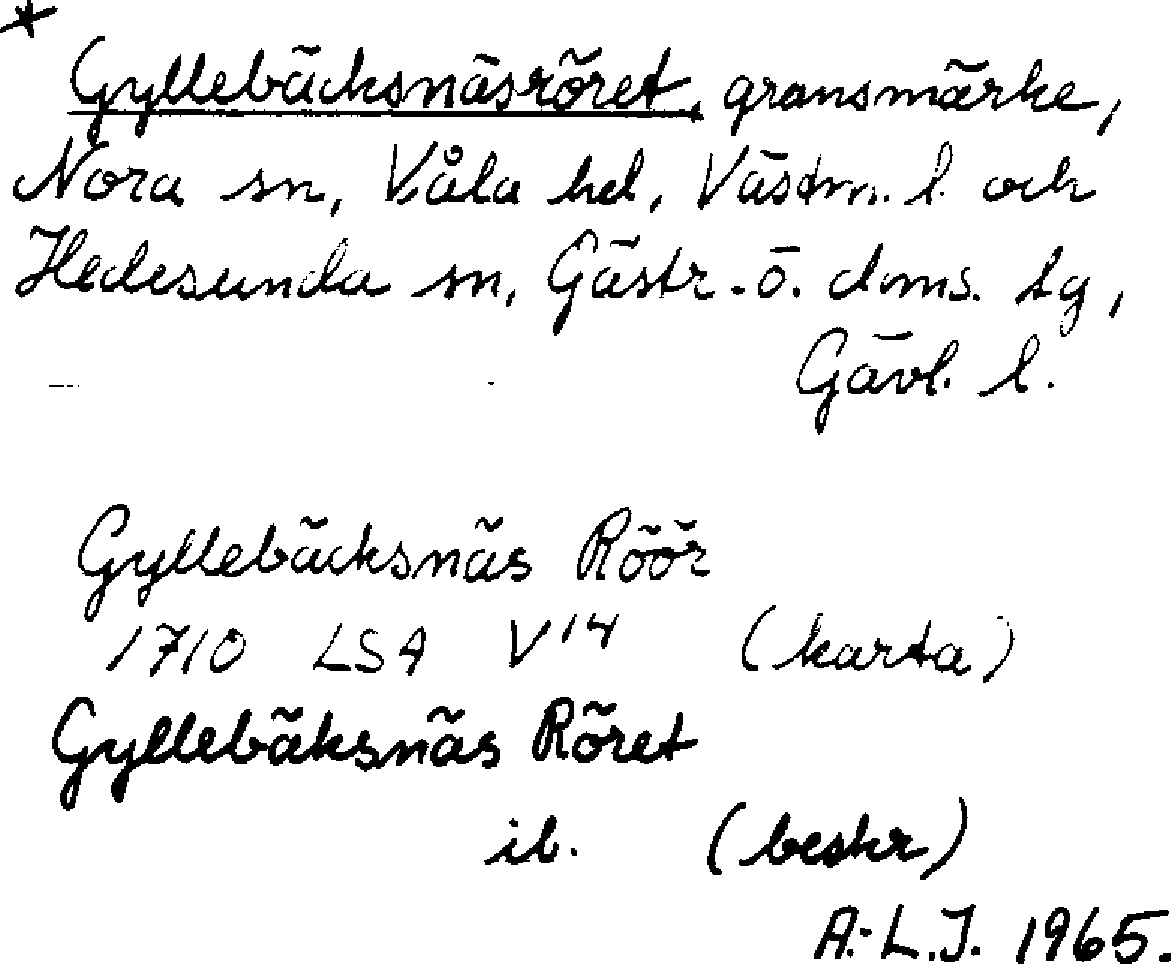 *
Gyllebäcksnäsröret, gränsmärke,
Nora sn, Våla hd, Västm. l. och
Hedesunda sn, Gästr. ö. doms. lg,
Gävl. l.
Gyllebäcksnäs Röör
1710 LSA V 14 (karta)
Gyllebäksnäs Röret
ib. (beskr)
A.-L.J. 1965.